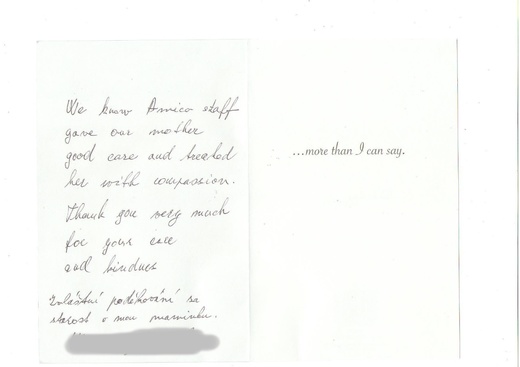 We know Amica staff
gave our mother
good care and treated
her with compassion.
Thank you very much
for your care
and kindnes
zvláštní poděkování za
starost o mou maminku.
...more than I can say.